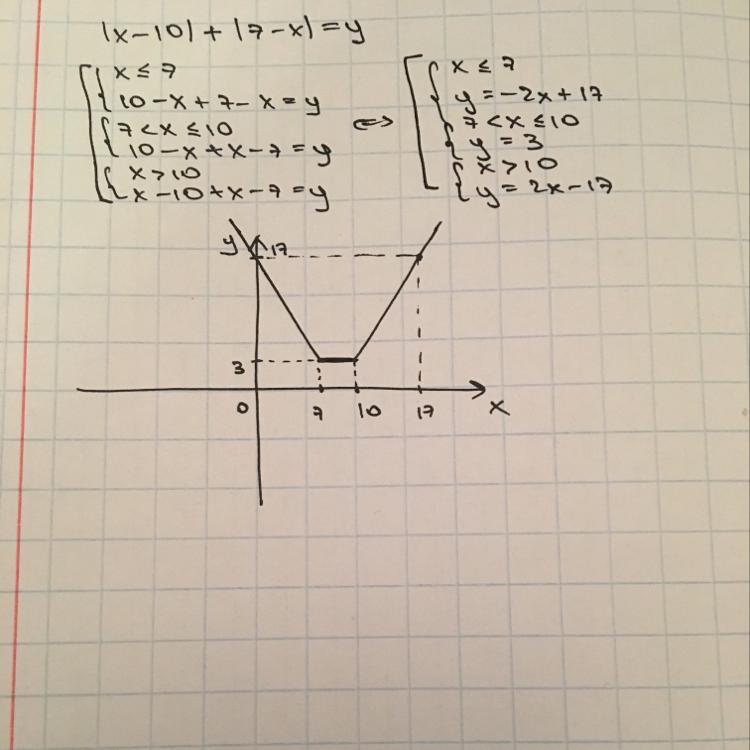 |x-10| + |7-x| = y
x ≤ 7
10-x+7-x = y
7 < x ≤ 10
10-x+x-7 = y
x > 10
x-10+x-7 = y
⇔
x ≤ 7
y = -2x+17
7 < x ≤ 10
y = 3
x > 10
y = 2x-17
y 17
3
0 7 10 17 x